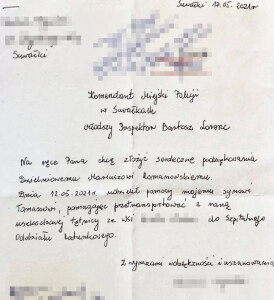 Suwałki 17.05.2021r
Suwałki
Komendant Miejski Policji
w Suwałkach
młodszy Inspektor Bartosz Lorenc
Na ręce Pana chcę złożyć serdeczne podziękowania
Dzielnicowemu Mariuszowi Romanowskiemu.
Dnia 12.05.2021r. udzielił pomocy mojemu synowi
Tomaszowi, pomagając przetransportować z raną
uszkodzonej tętnicy ze wsi do Szpitalnego
Oddziału Ratunkowego.
Z wyrazami wdzięczności i uszanowania